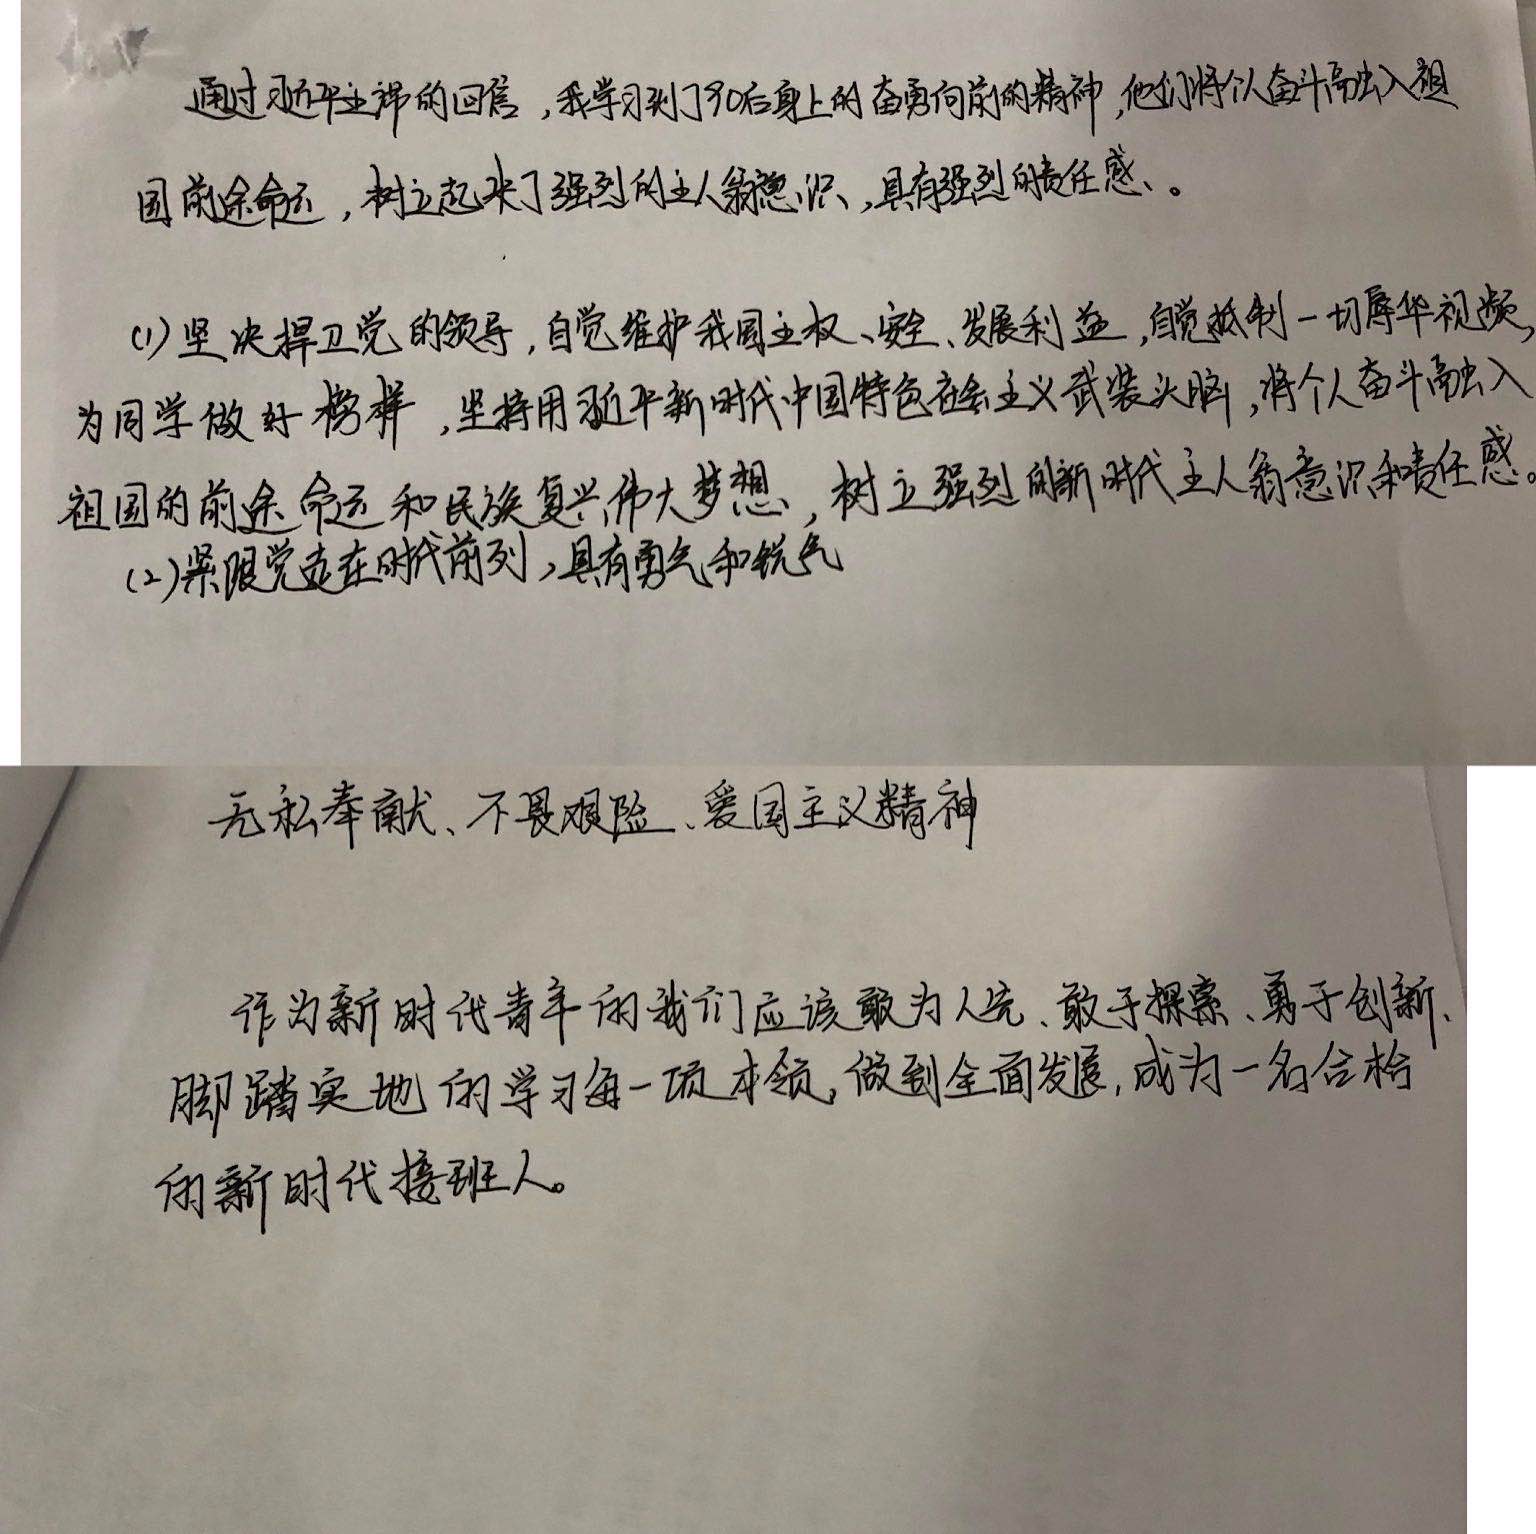 通过习近平主席的回信，我学习到了90后身上的奋勇向前的精神，他们将个人奋斗融入祖
国前途命运，树立起来了强烈的主人翁意识，具有强烈的责任感、。
(1)坚决捍卫党的领导，自觉维护我国主权、安全、发展利益，自觉抵制一切辱华视频，
为同学做好榜样，坚持用习近平新时代中国特色社会主义武装头脑，将个人奋斗融入
祖国的前途命运和民族复兴伟大梦想，树立强烈的新时代主人翁意识和责任感。
(2)紧跟党走在时代前列，具有勇气和锐气
无私奉献、不畏艰险、爱国主义精神
作为新时代青年的我们应该敢为人先、敢于探索、勇于创新、
脚踏实地的学习每一项本领，做到全面发展，成为一名合格
的新时代接班人。